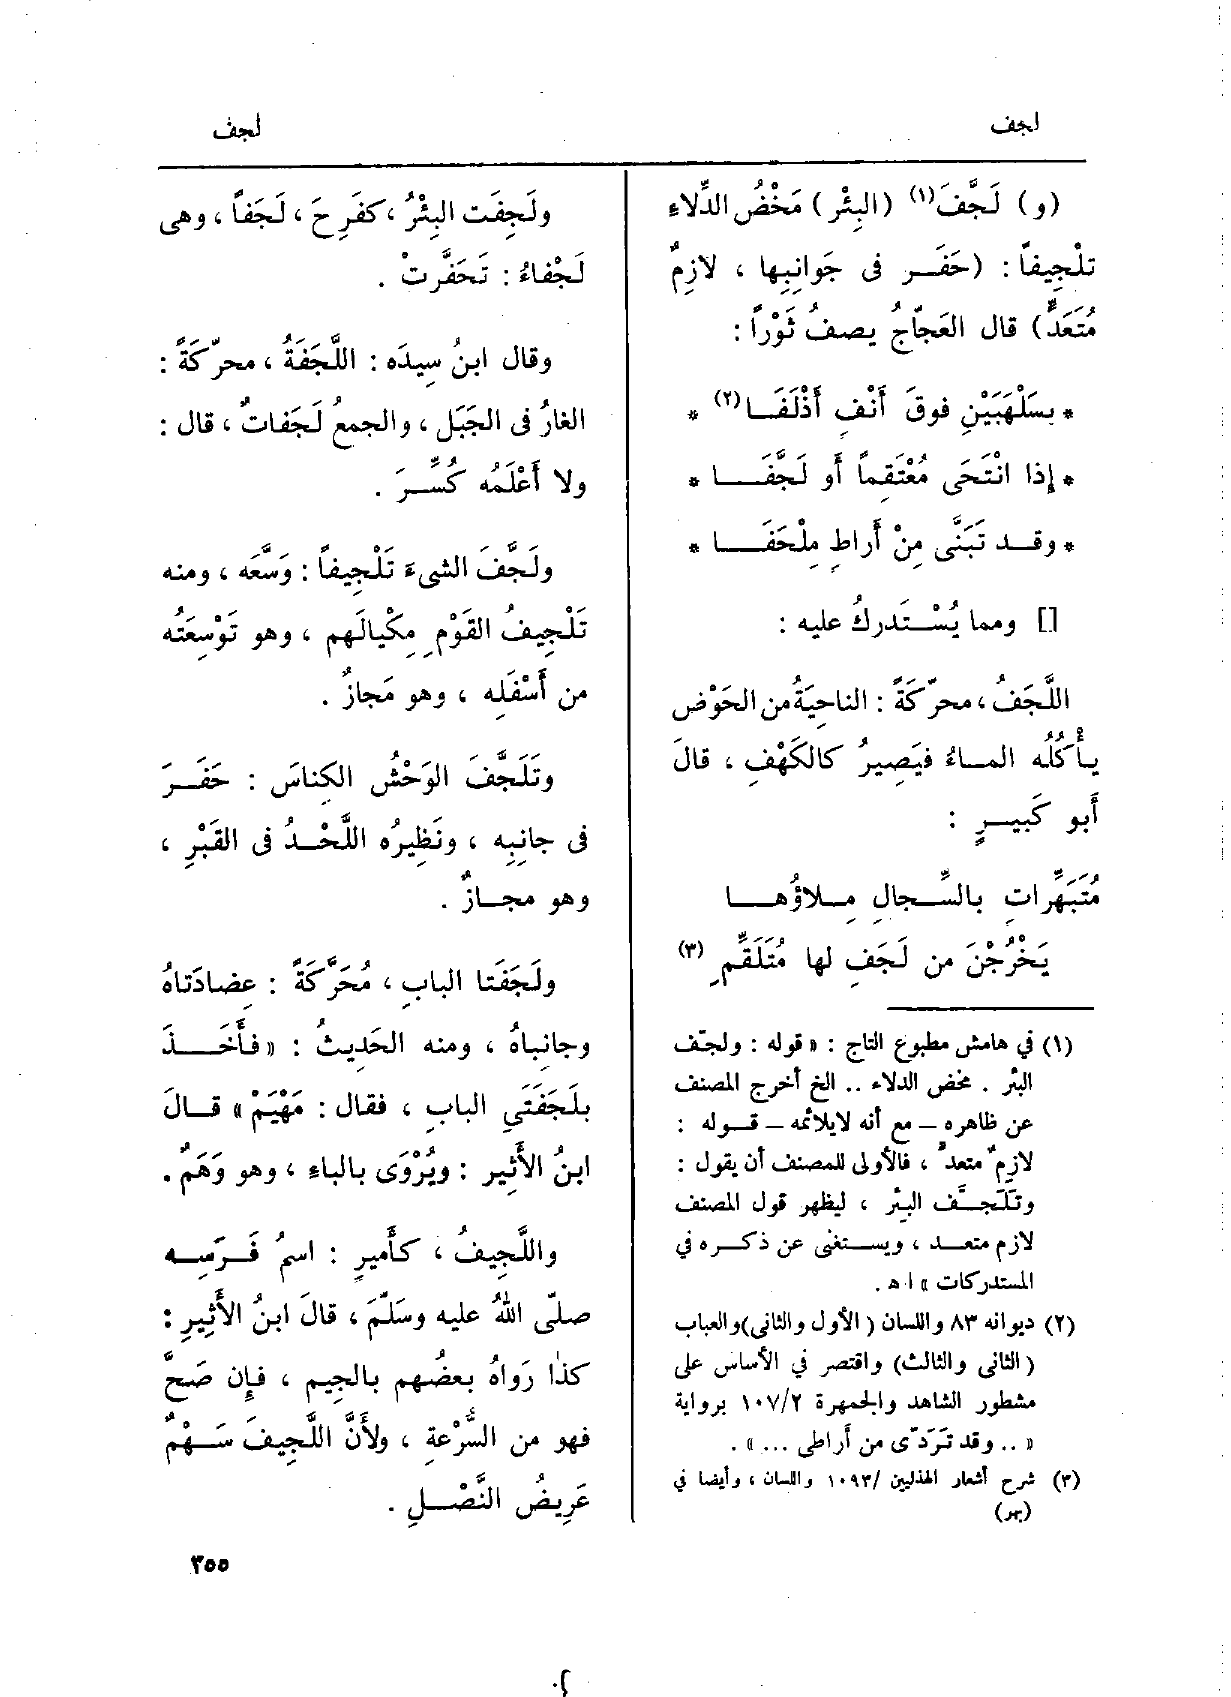 لجف
لجف
(و) لَجَّفَ(١) (البِئْر) مَخْضُ الدِّلاءِ
تلْجِيفاً : (حَفَـر فى جَوانِبِها ، لازِمٌ
مُتَعَدٍّ) قال العَجّاجُ يصفُ ثَوْراً :
* بسَلْهَبَيْنِ فوقَ أَنْفٍ أَذْلَفَـا(٢) *
* إِذا انْتَحَى مُعْتَقِماً أَو لَجَّفَـا *
* وقـد تَبَنَّى مِنْ أَراطٍ مِلْحَفَـا *
[] ومما يُسْتَدركُ عليه :
اللَّجَفُ ، محرّكَةً : الناحِيَةُ من الحَوْضِ
يأْكُلُه المـاءُ فيَصِيرُ كالكَهْفِ ، قالَ
أَبو كَبيـرٍ :
مُتَبَهِّراتٍ بالسِّجالِ مِـلاؤُهـا
يَخْرُجْنَ من لَجَفٍ لها مُتَلَقِّمِ (٣)
(١) في هامش مطبوع التاج : « قوله : ولجّف
البئر . مخض الدلاء .. الخ أخرج المصنف
عن ظاهره – مع أنه لايلائمه – قـوله :
لازمٌ متعدٍ ، فالأولى للمصنف أن يقول :
وتَلَجَّف البئر ، ليظهر قول المصنف
لازم متعـد ، ويستغنى عن ذكـره في
المستدركات » ا هـ .
(٢) ديوانه ٨٣ واللسان ( الأول والثانى) والعباب
(الثانى والثالث) واقتصر في الأساس على
مشطور الشاهد والجمهرة ١٠٧/٢ برواية
« .. وقد تَرَدّى من أراطى ... » .
(٣) شرح أشعار الهذليين /١٠٩٣ واللسان ، وأيضا في
(بهر)
ولَجِفَت البِئْرُ ، كفَرِحَ ، لَجَفاً ، وهى
لَجْفاءُ : تَحَفَّرتْ .
وقال ابنُ سِيدَه : اللَّجَفَةُ ، محرّكَةً :
الغارُ فى الجَبَل ، والجمعُ لَجَفاتٌ ، قال :
ولا أَعْلَمُه كُسِّـرَ .
ولَجَّفَ الشىءَ تَلْجِيفاً : وَسَّعَه ، ومنه
تَلْجِيفُ القَوْمِ مِكْيالَهم ، وهو تَوْسِعَتُه
من أَسْفَلِه ، وهو مَجازٌ .
وتَلَجَّفَ الوَحْشُ الكِناسَ : حَفَـرَ
فى جانِبِه ، ونَظِيرُه اللَّحْـدُ فى القَبْرِ ،
وهو مجـازٌ .
ولَجَفَتا البابِ ، مُحَرَّكَةً : عِضادَتاهُ
وجانِباهُ ، ومنه الحَدِيثُ : « فأَخَـذَ
بلَجَفَتَيِ البابِ ، فقال : مَهْيَمْ » قـالَ
ابنُ الأَثِيرِ : ويُرْوَى بالباءِ ، وهو وَهَمٌ .
واللَّجِيفُ ، كأَميرٍ : اسمُ فَـرَسِـه
صلّى اللهُ عليه وسَلّمَ ، قالَ ابنُ الأَثِيرِ :
كذا رَواهُ بعضُهم بالجِيم ، فإِن صَحَّ
فهو من السُّرْعةِ ، ولأَنَّ اللَّجِيفَ سَـهْمٌ
عَرِيضُ النَّصْـلِ .
٣٥٥